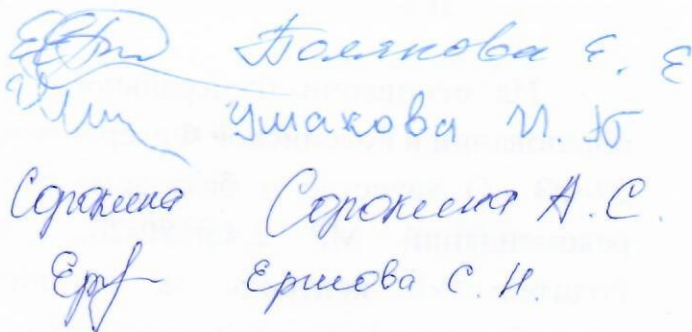 Полякова Е. Е
Ушакова И. Ю
Сорокина Сорокина А. С.
Ершова С. Н.